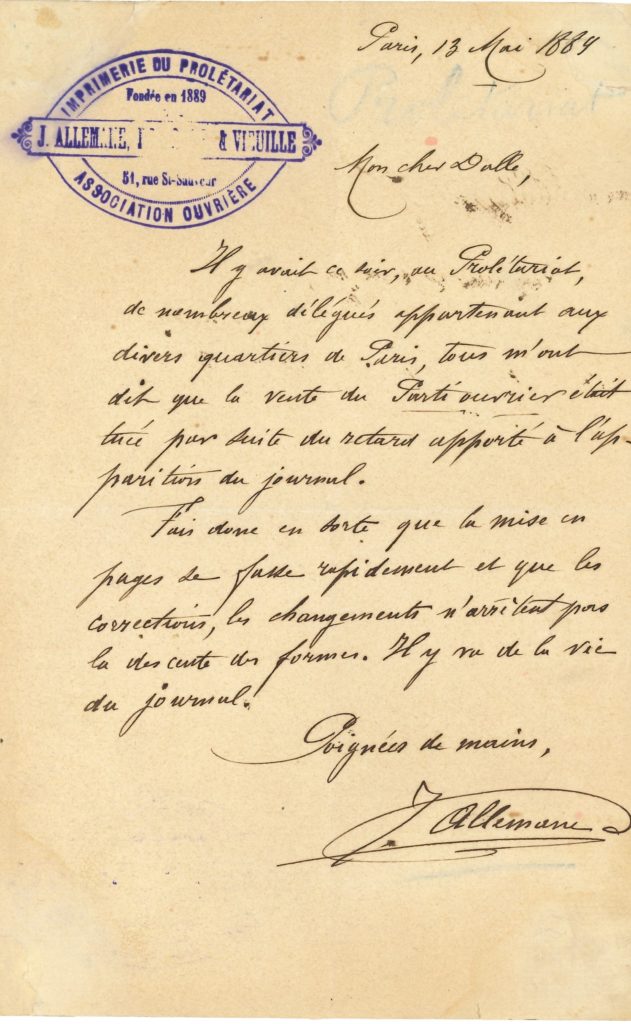 Paris, 13 Mai 1889
IMPRIMERIE DU PROLÉTARIAT
Fondée en 1889
J. ALLEMANE, & VIEUILLE
51, rue St-Sauveur
ASSOCIATION OUVRIÈRE
Prolétariat
Mon cher Dalle,
Il y avait ce soir, au Prolétariat,
de nombreux délégués appartenant aux
divers quartiers de Paris, tous m'ont
dit que la vente du Parti ouvrier était
tuée par suite du retard apporté à l'ap-
parition du journal.
Fais donc en sorte que la mise en
pages se fasse rapidement et que les
corrections, les changements n'arrêtent pas
la descente des formes. Il y va de la vie
du journal.
Poignées de mains,
J Allemane